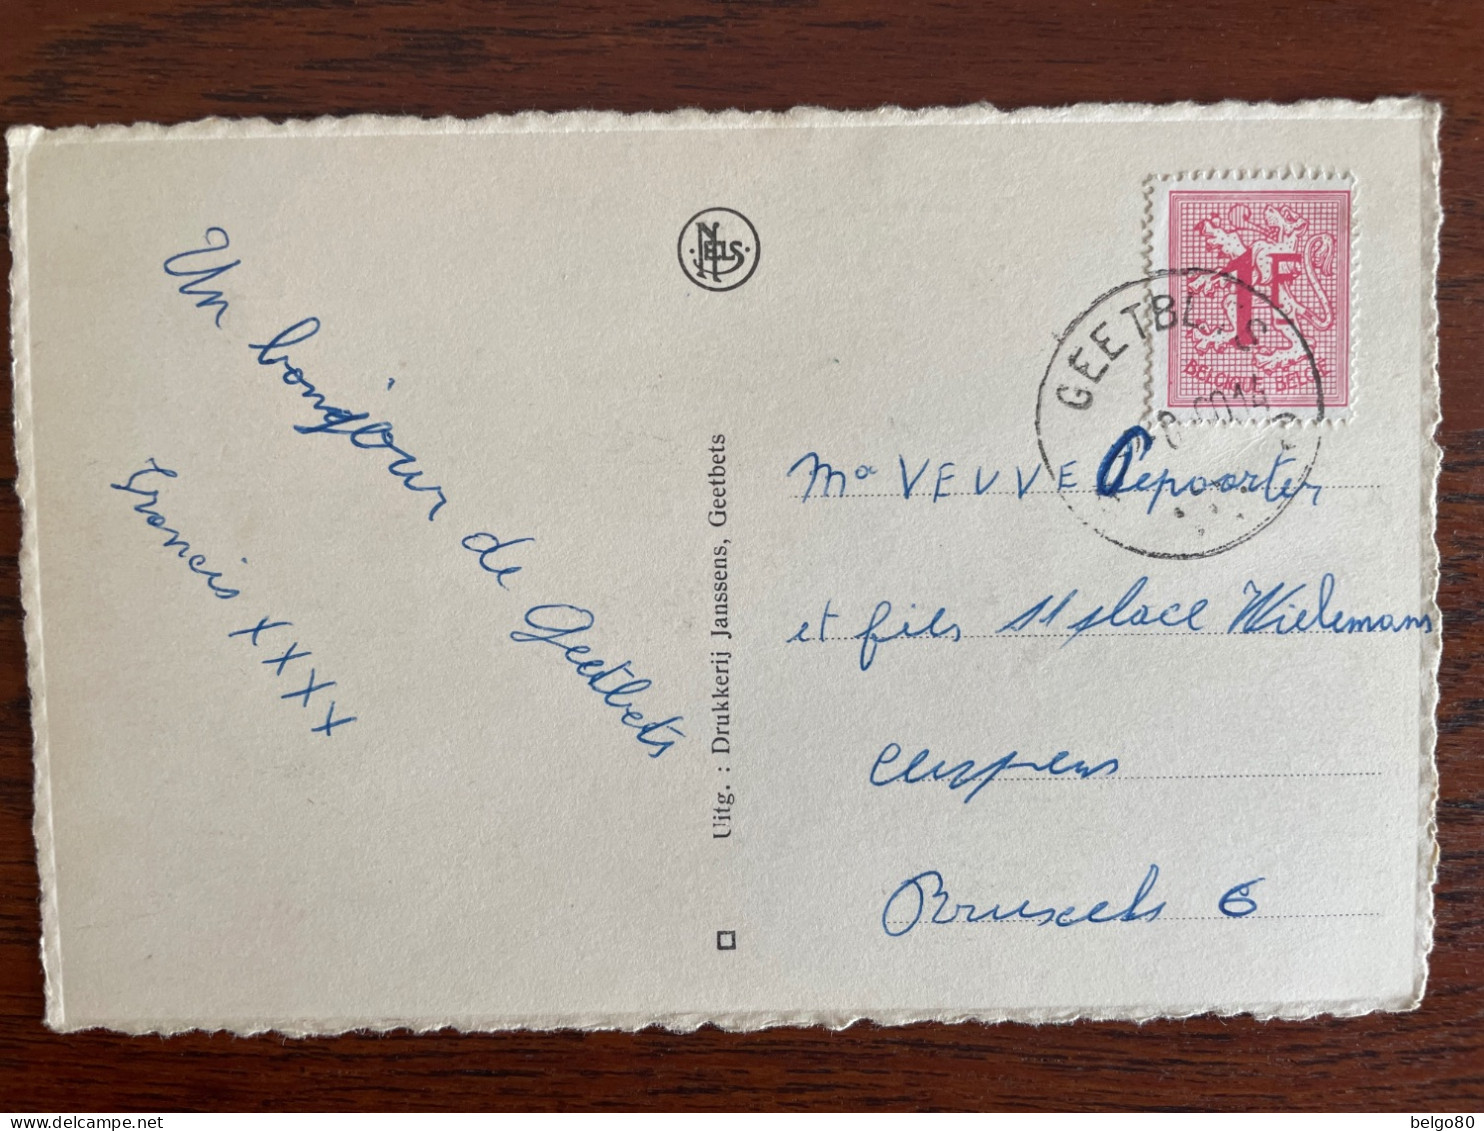 Un bonjour de Geetbets
Francis XXXX
NELS
Uitg. : Drukkerij Janssens, Geetbets
1F
BELGIQUE BELGIE
GEETBETS
Ma VEUVE Depoorter
et fils 11 place Wielemans
Ceuppens
Bruxels 6
belgo80